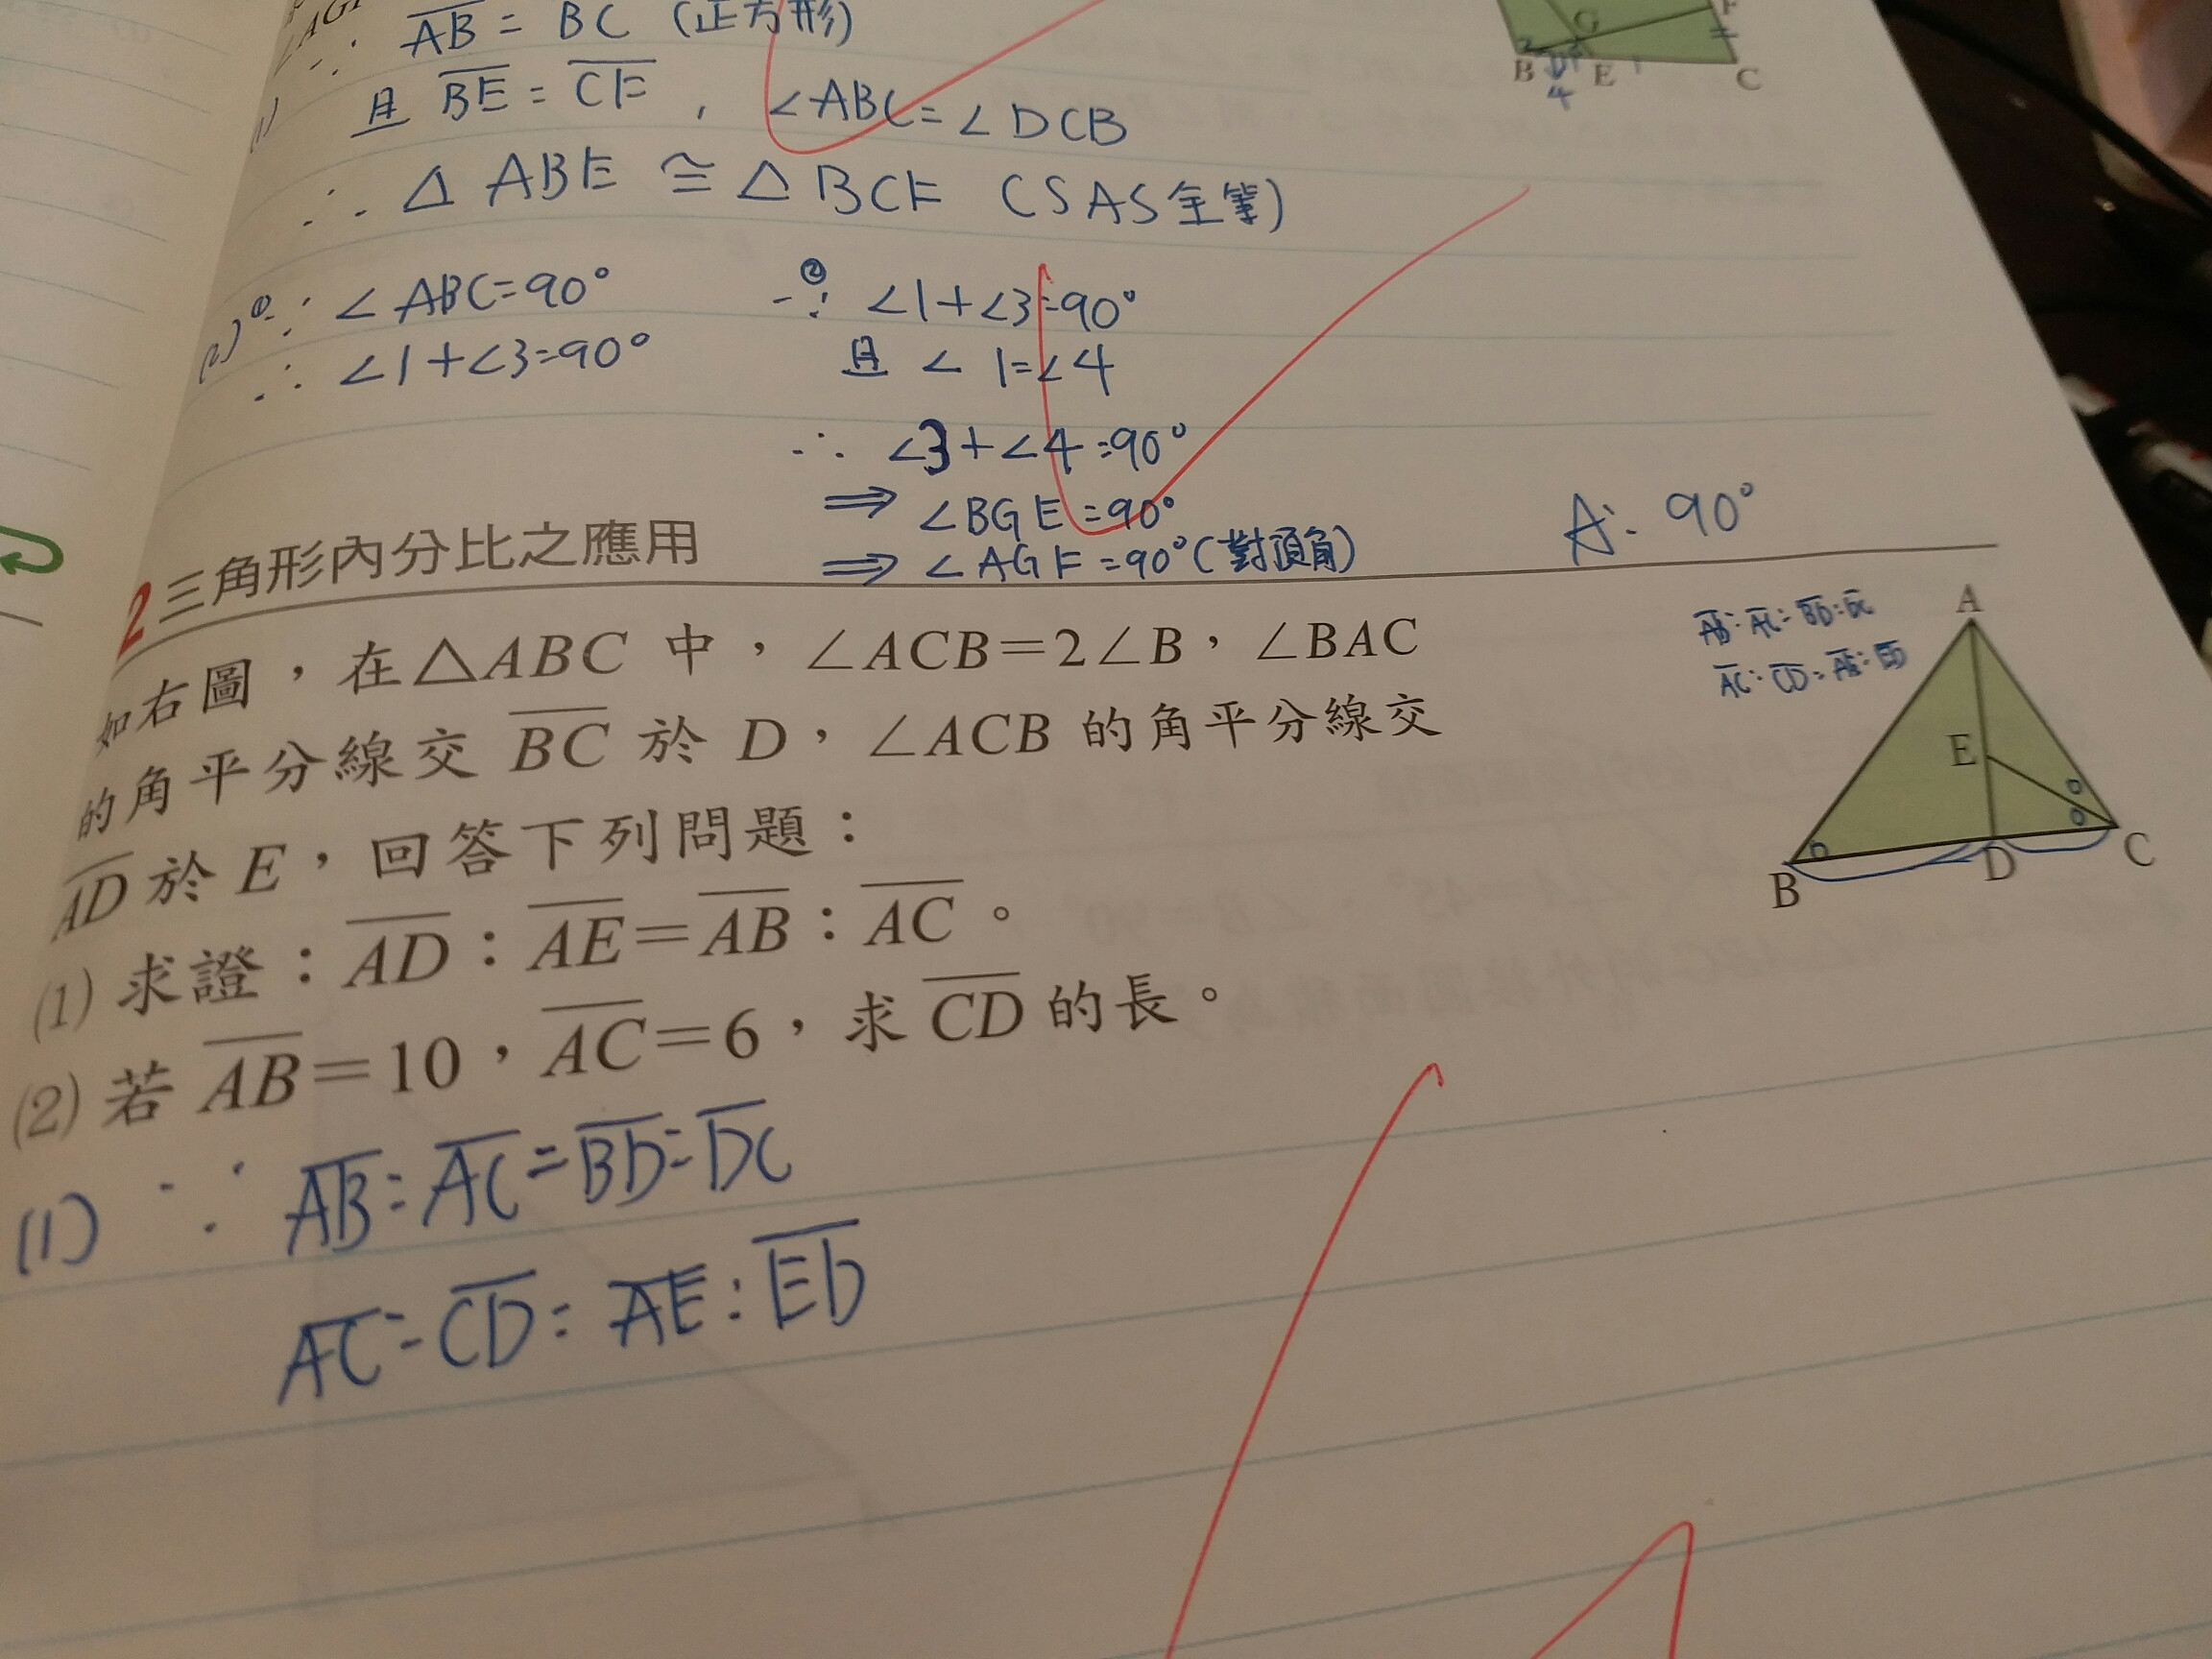 ∠AGF
∵ AB = BC (正方形)
(1) 且 BE = CF , ∠ABC = ∠DCB
∴ △ABE ≅ △BCF (SAS全等)
(2) ① ∵ ∠ABC=90°
∴ ∠1+∠3=90°
② ∵ ∠1+∠3=90°
且 ∠1=∠4
∴ ∠3+∠4=90°
⇒ ∠BGE=90°
⇒ ∠AGF=90°(對頂角)
A: 90°
G
F
B
E
C
2
1
4
2 三角形內分比之應用
如右圖，在△ABC 中，∠ACB=2∠B，∠BAC
的角平分線交 BC 於 D，∠ACB 的角平分線交
AD 於 E，回答下列問題：
(1) 求證：AD：AE=AB：AC。
(2) 若 AB=10，AC=6，求 CD 的長。
AB:AC=BD:DC
AC:CD=AE:ED
A
E
B
D
C
(1) ∵ AB:AC=BD:DC
AC:CD=AE:ED